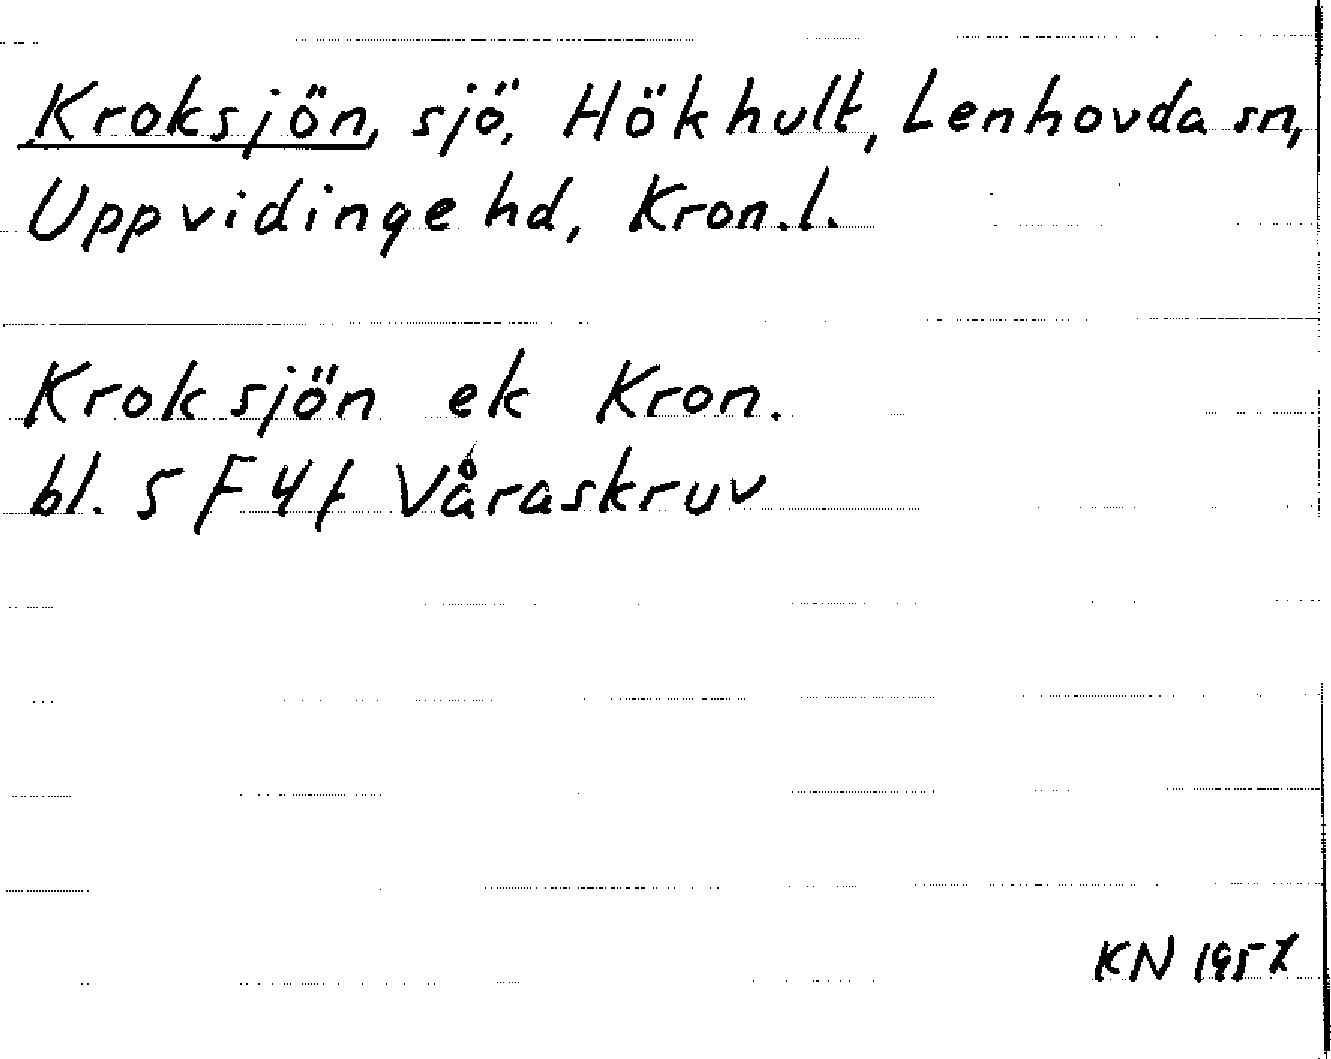 Kroksjön, sjö, Hökhult, Lenhovda sn,
Uppvidinge hd, Kron.l.
Kroksjön ek Kron.
bl. 5 F 4 f Våraskruv
KN 1957